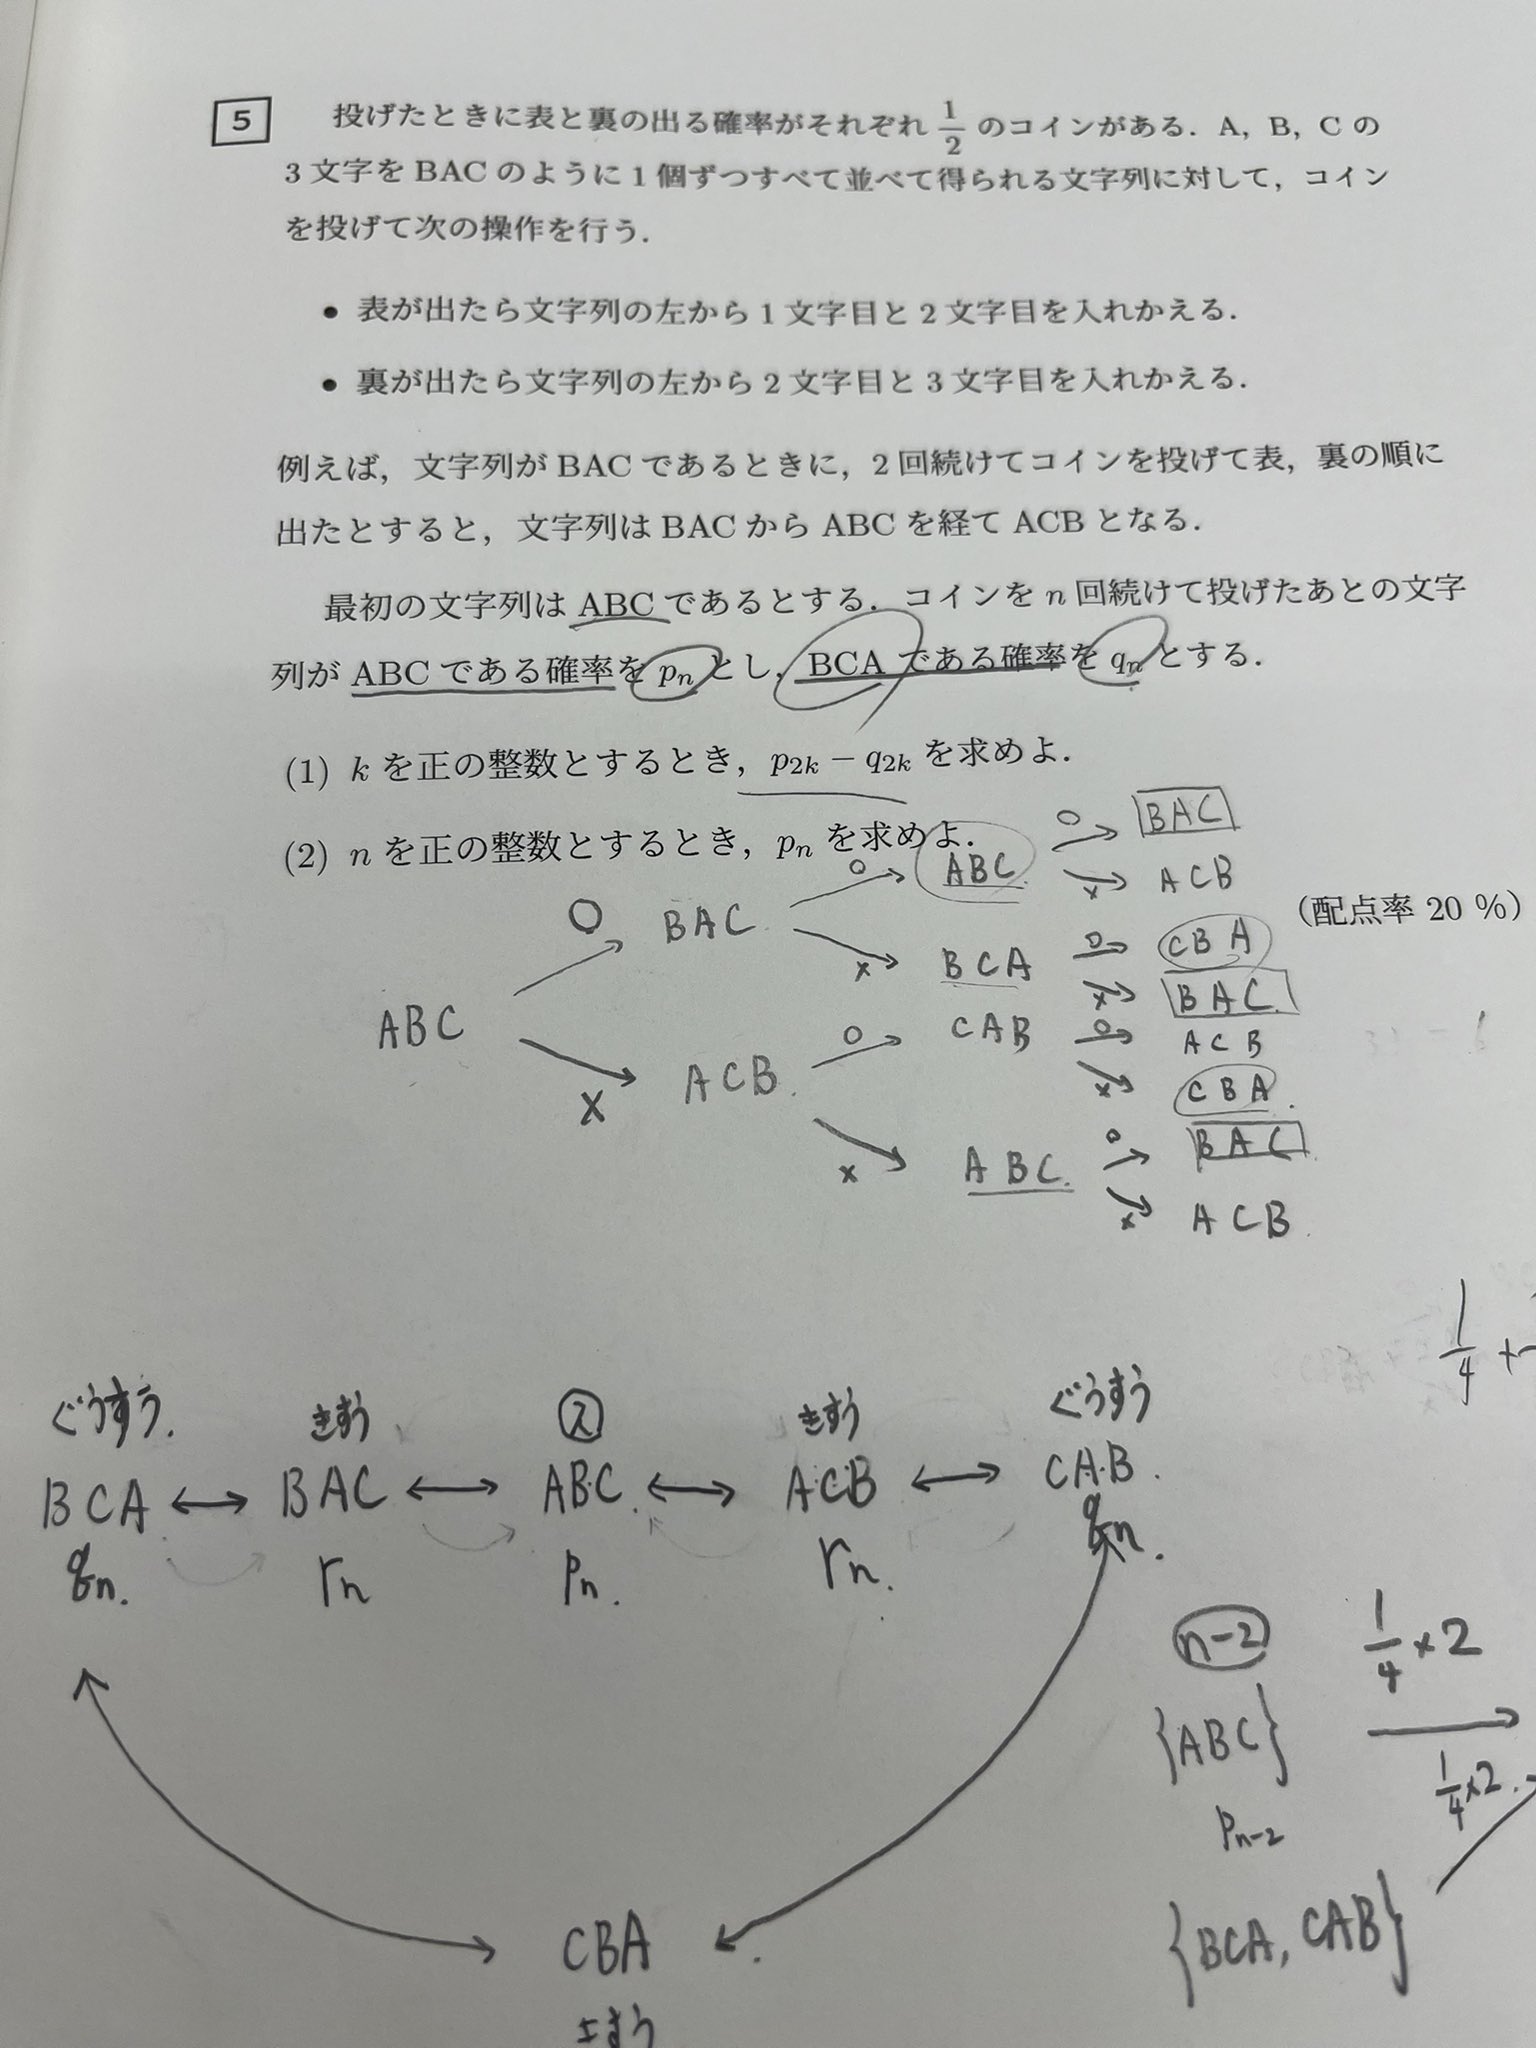 5 投げたときに表と裏の出る確率がそれぞれ 1/2 のコインがある．A，B，C の
3 文字を BAC のように 1 個ずつすべて並べて得られる文字列に対して，コイン
を投げて次の操作を行う．
• 表が出たら文字列の左から 1 文字目と 2 文字目を入れかえる．
• 裏が出たら文字列の左から 2 文字目と 3 文字目を入れかえる．
例えば，文字列が BAC であるときに，2 回続けてコインを投げて表，裏の順に
出たとすると，文字列は BAC から ABC を経て ACB となる．
最初の文字列は ABC であるとする．コインを n 回続けて投げたあとの文字
列が ABC である確率を pn とし，BCA である確率を qn とする．
(1) k を正の整数とするとき，p2k − q2k を求めよ．
(2) n を正の整数とするとき，pn を求めよ．
(配点率 20 %)
ABC
○ BAC
× ACB
○ ABC
× BCA
○ CAB
× ABC
○ BAC
× ACB
○ CBA
× BAC
○ ACB
× CBA
○ BAC
× ACB
1/4 +
ぐうすう. きすう ス きすう ぐうすう
BCA ↔ BAC ↔ ABC ↔ ACB ↔ CAB
qn. rn pn. rn. qn.
CBA
きすう
n-2 1/4×2
{ABC} →
pn-2 1/4×2
{BCA, CAB}